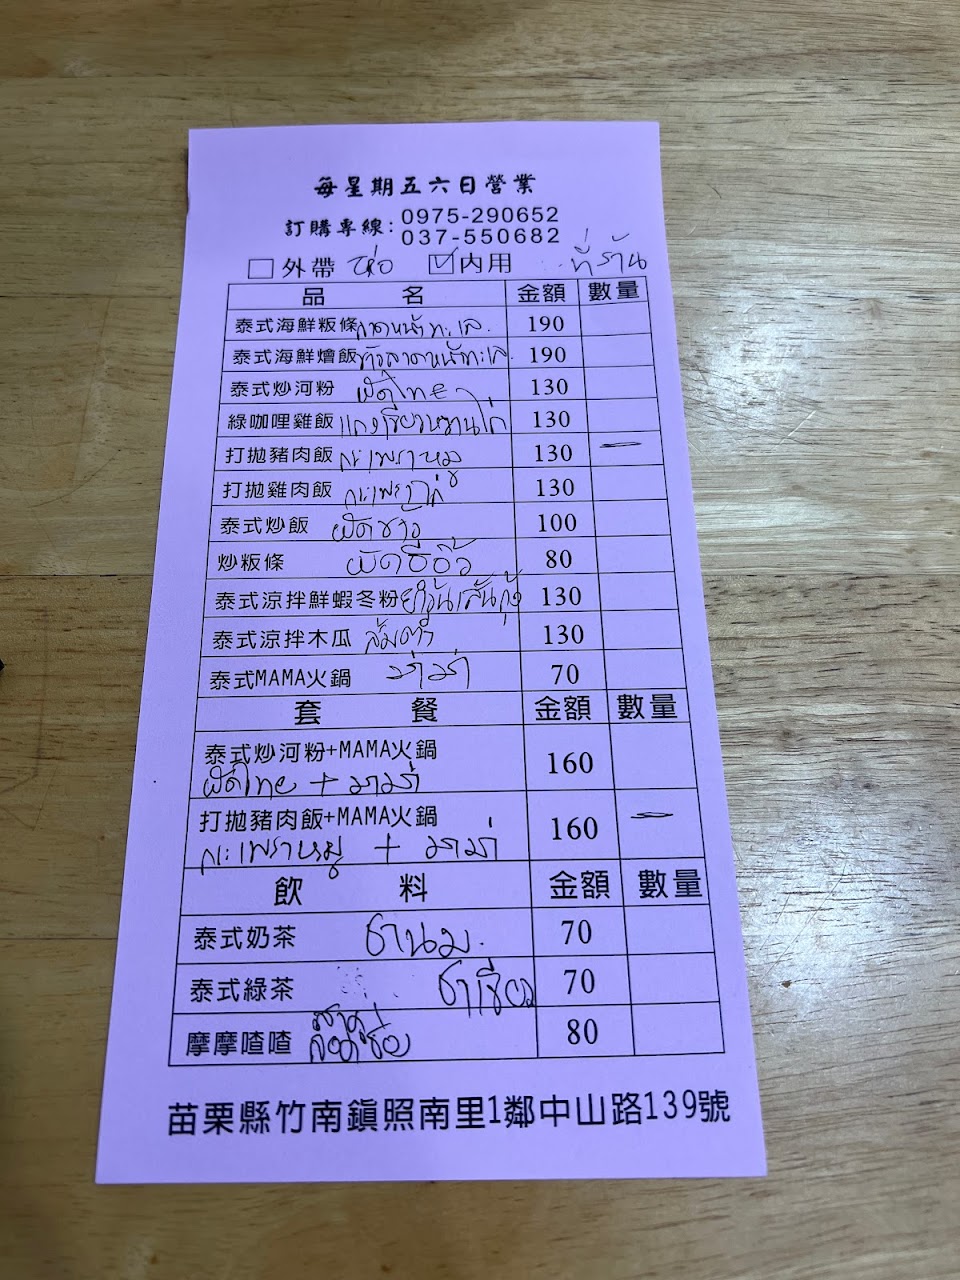 每星期五六日營業
訂購專線: 0975-290652
037-550682
□外帶 ห่อ ☑內用 ที่ร้าน
品名 金額 數量
泰式海鮮粄條 ลาดหน้าทะเล 190
泰式海鮮燴飯 ข้าวลาดหน้าทะเล 190
泰式炒河粉 ผัดไทย 130
綠咖哩雞飯 แกงเขียวหวานไก่ 130
打拋豬肉飯 กะเพราหมู 130 一
打拋雞肉飯 กะเพราไก่ 130
泰式炒飯 ผัดข้าว 100
炒粄條 ผัดซีอิ๊ว 80
泰式涼拌鮮蝦冬粉 ยำวุ้นเส้นกุ้ง 130
泰式涼拌木瓜 ส้มตำ 130
泰式MAMA火鍋 มาม่า 70
套餐 金額 數量
泰式炒河粉+MAMA火鍋 160
ผัดไทย + มาม่า
打拋豬肉飯+MAMA火鍋 160 一
กะเพราหมู + มาม่า
飲料 金額 數量
泰式奶茶 ชานม 70
泰式綠茶 ชาเขียว 70
摩摩喳喳 80
苗栗縣竹南鎮照南里1鄰中山路139號